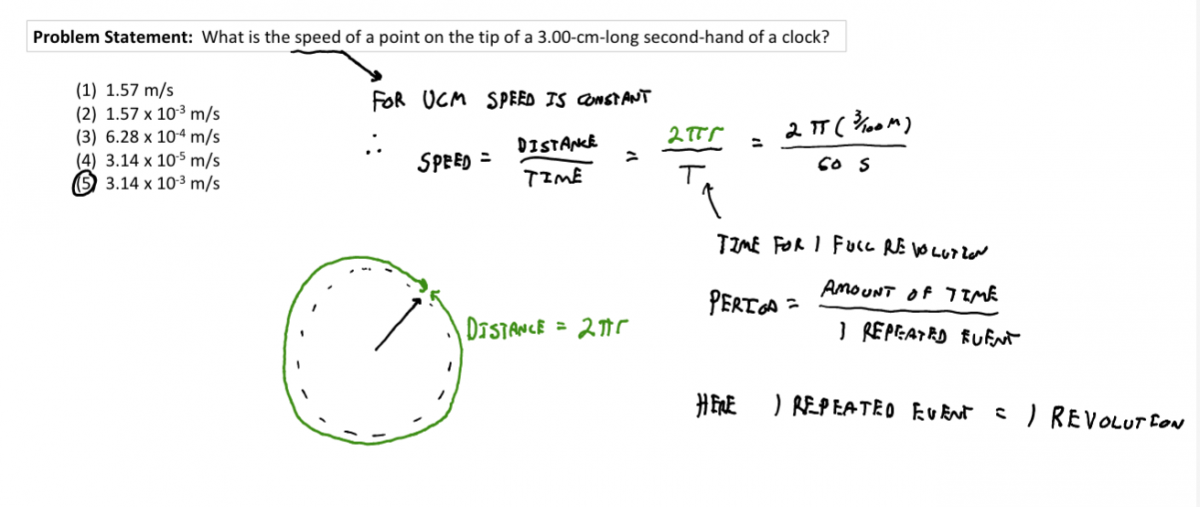 Problem Statement: What is the speed of a point on the tip of a 3.00-cm-long second-hand of a clock?
(1) 1.57 m/s
(2) 1.57 x 10⁻³ m/s
(3) 6.28 x 10⁻⁴ m/s
(4) 3.14 x 10⁻⁵ m/s
(5) 3.14 x 10⁻³ m/s
FOR UCM SPEED IS CONSTANT
∴ SPEED = DISTANCE / TIME = 2πr / T = 2π(3/100 M) / 60 S
TIME FOR 1 FULL REVOLUTION
PERIOD = AMOUNT OF TIME / 1 REPEATED EVENT
DISTANCE = 2πr
HERE 1 REPEATED EVENT = 1 REVOLUTION